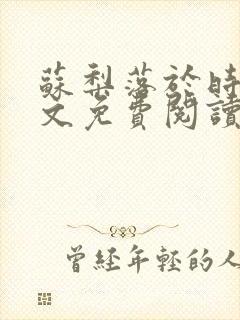 蘇梨落於時
文免費閱讀
曾經年輕的人